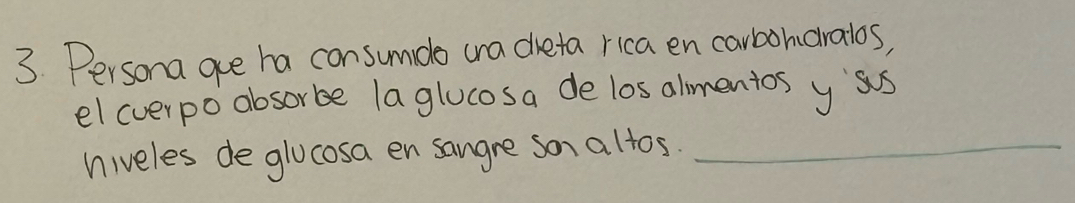 3. Persona que ha consumido una dieta rica en carbohidratos,
el cuerpo absorbe la glucosa de los alimentos y sus
niveles de glucosa en sangre son altos. ____________